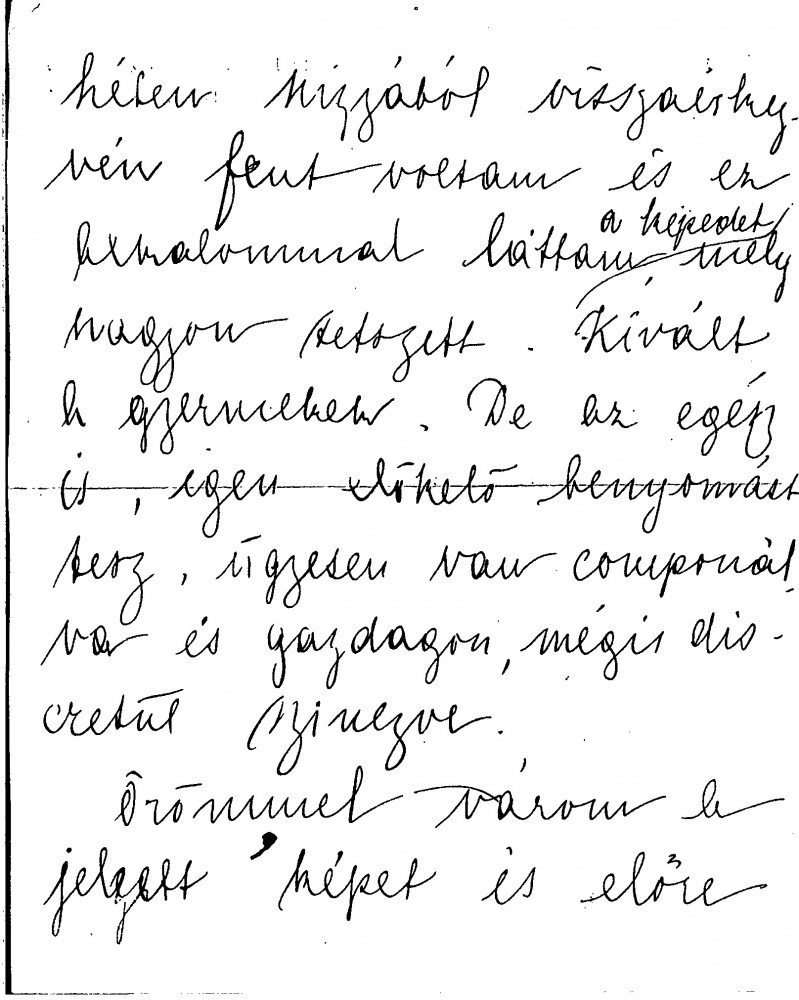 héten Nizzából visszaérkez-
vén fent voltam és ez
alkalommal láttam a képedet, mely
nagyon tetszett. Kívált
a gyermekek. De az egész
is, igen előkelő benyomást
tesz, ügyesen van componál
va és gazdagon, mégis dis-
cretül szinezve.
Örömmel várom a
jelzett képet és előre